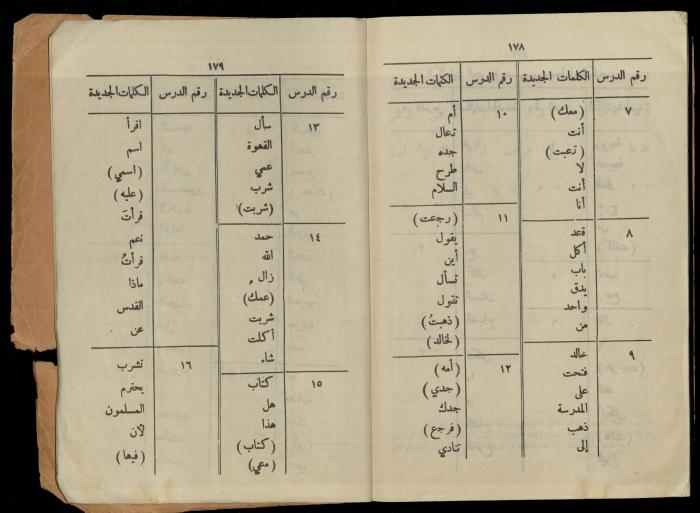 ١٧٨
رقم الدرس الكلمات الجديدة رقم الدرس الكلمات الجديدة
٧ (معك)
أنت
(تعبت)
لا
أنت
أنا
٨ قعد
أكل
باب
يدق
واحد
من
٩ خالد
فتحت
على
المدرسة
ذهب
إلى
١٠ أم
تعال
جده
طرح
السلام
١١ (رجعت)
يقول
أين
تسأل
تقول
(ذهبتُ)
(لخالد)
١٢ (أمه)
(جدي)
جدك
(فرجع)
تنادي
١٧٩
رقم الدرس الكلمات الجديدة رقم الدرس الكلمات الجديدة
١٣ سأل
القهوة
عمي
شرب
(شربت)
١٤ حمد
الله
زال
(عمك)
شربت
أكلت
شاء
١٥ كتاب
هل
هذا
(كتاب)
(معي)
اقرأ
اسم
(اسمي)
(عليه)
قرأتَ
نعم
قرأتُ
ماذا
القدس
عن
١٦ تشرب
يحترم
المسلمون
لأن
(فيها)